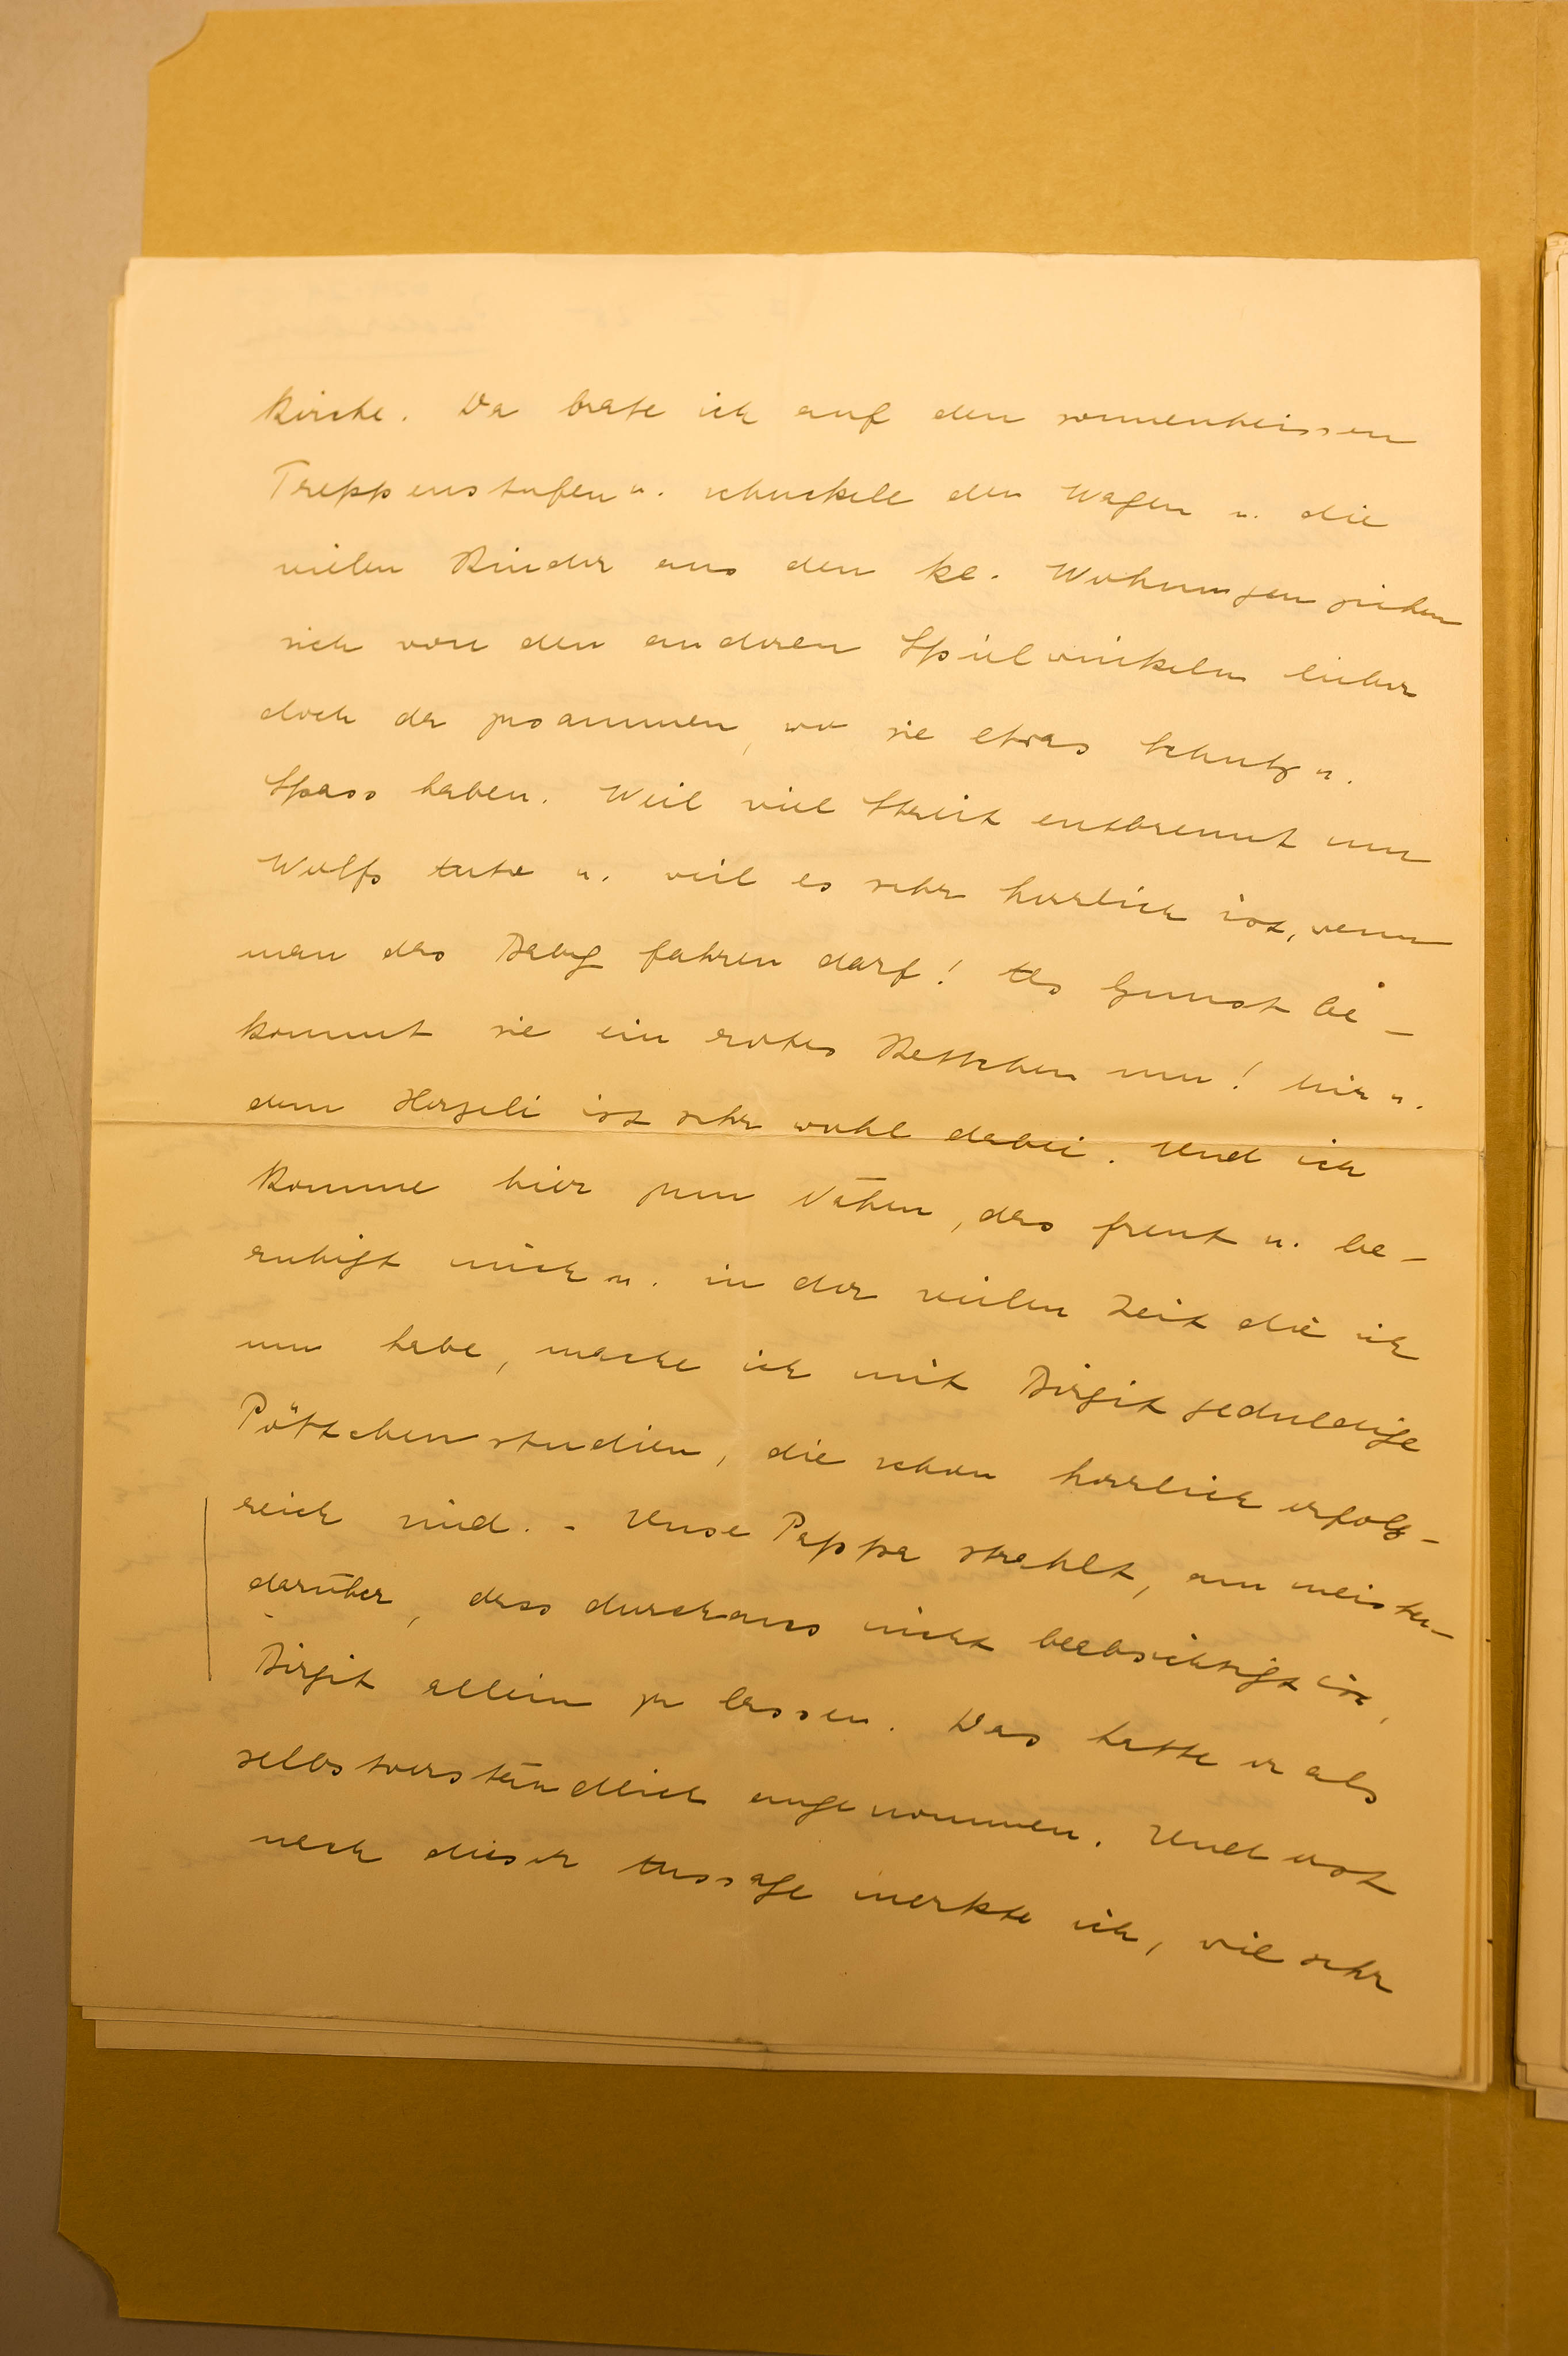 Kirche. Da brate ich auf den sonnenheissen
Treppenstufen u. schuckele den Wagen u. die
vielen Kinder aus den kl. Wohnungen ziehen
sich von den anderen Spielwinkeln lieber
doch da zusammen, wo sie etwas Schutz u.
Spass haben. Weil viel Streit entbrennt um
Wolfs Auto u. weil es sehr herrlich ist, wenn
man das Baby fahren darf! Als Gunst be-
kommt sie ein rotes Kettchen um! Mir u.
dem Herzeli ist sehr wohl dabei. Und ich
komme hier zum Nähen, das freut u. be-
ruhigt mich u. in der vielen Zeit die ich
nun habe, mache ich mit Birgit geduldige
Pöttchenstudien, die schon herrlich erfolg-
reich sind. - Unse Pappa strahlt, am meisten
darüber, dass durchaus nicht beabsichtigt ist,
Birgit allein zu lassen. Das hatte er als
selbstverständlich angenommen. Und erst
nach dieser Aussage merkte ich, wie sehr